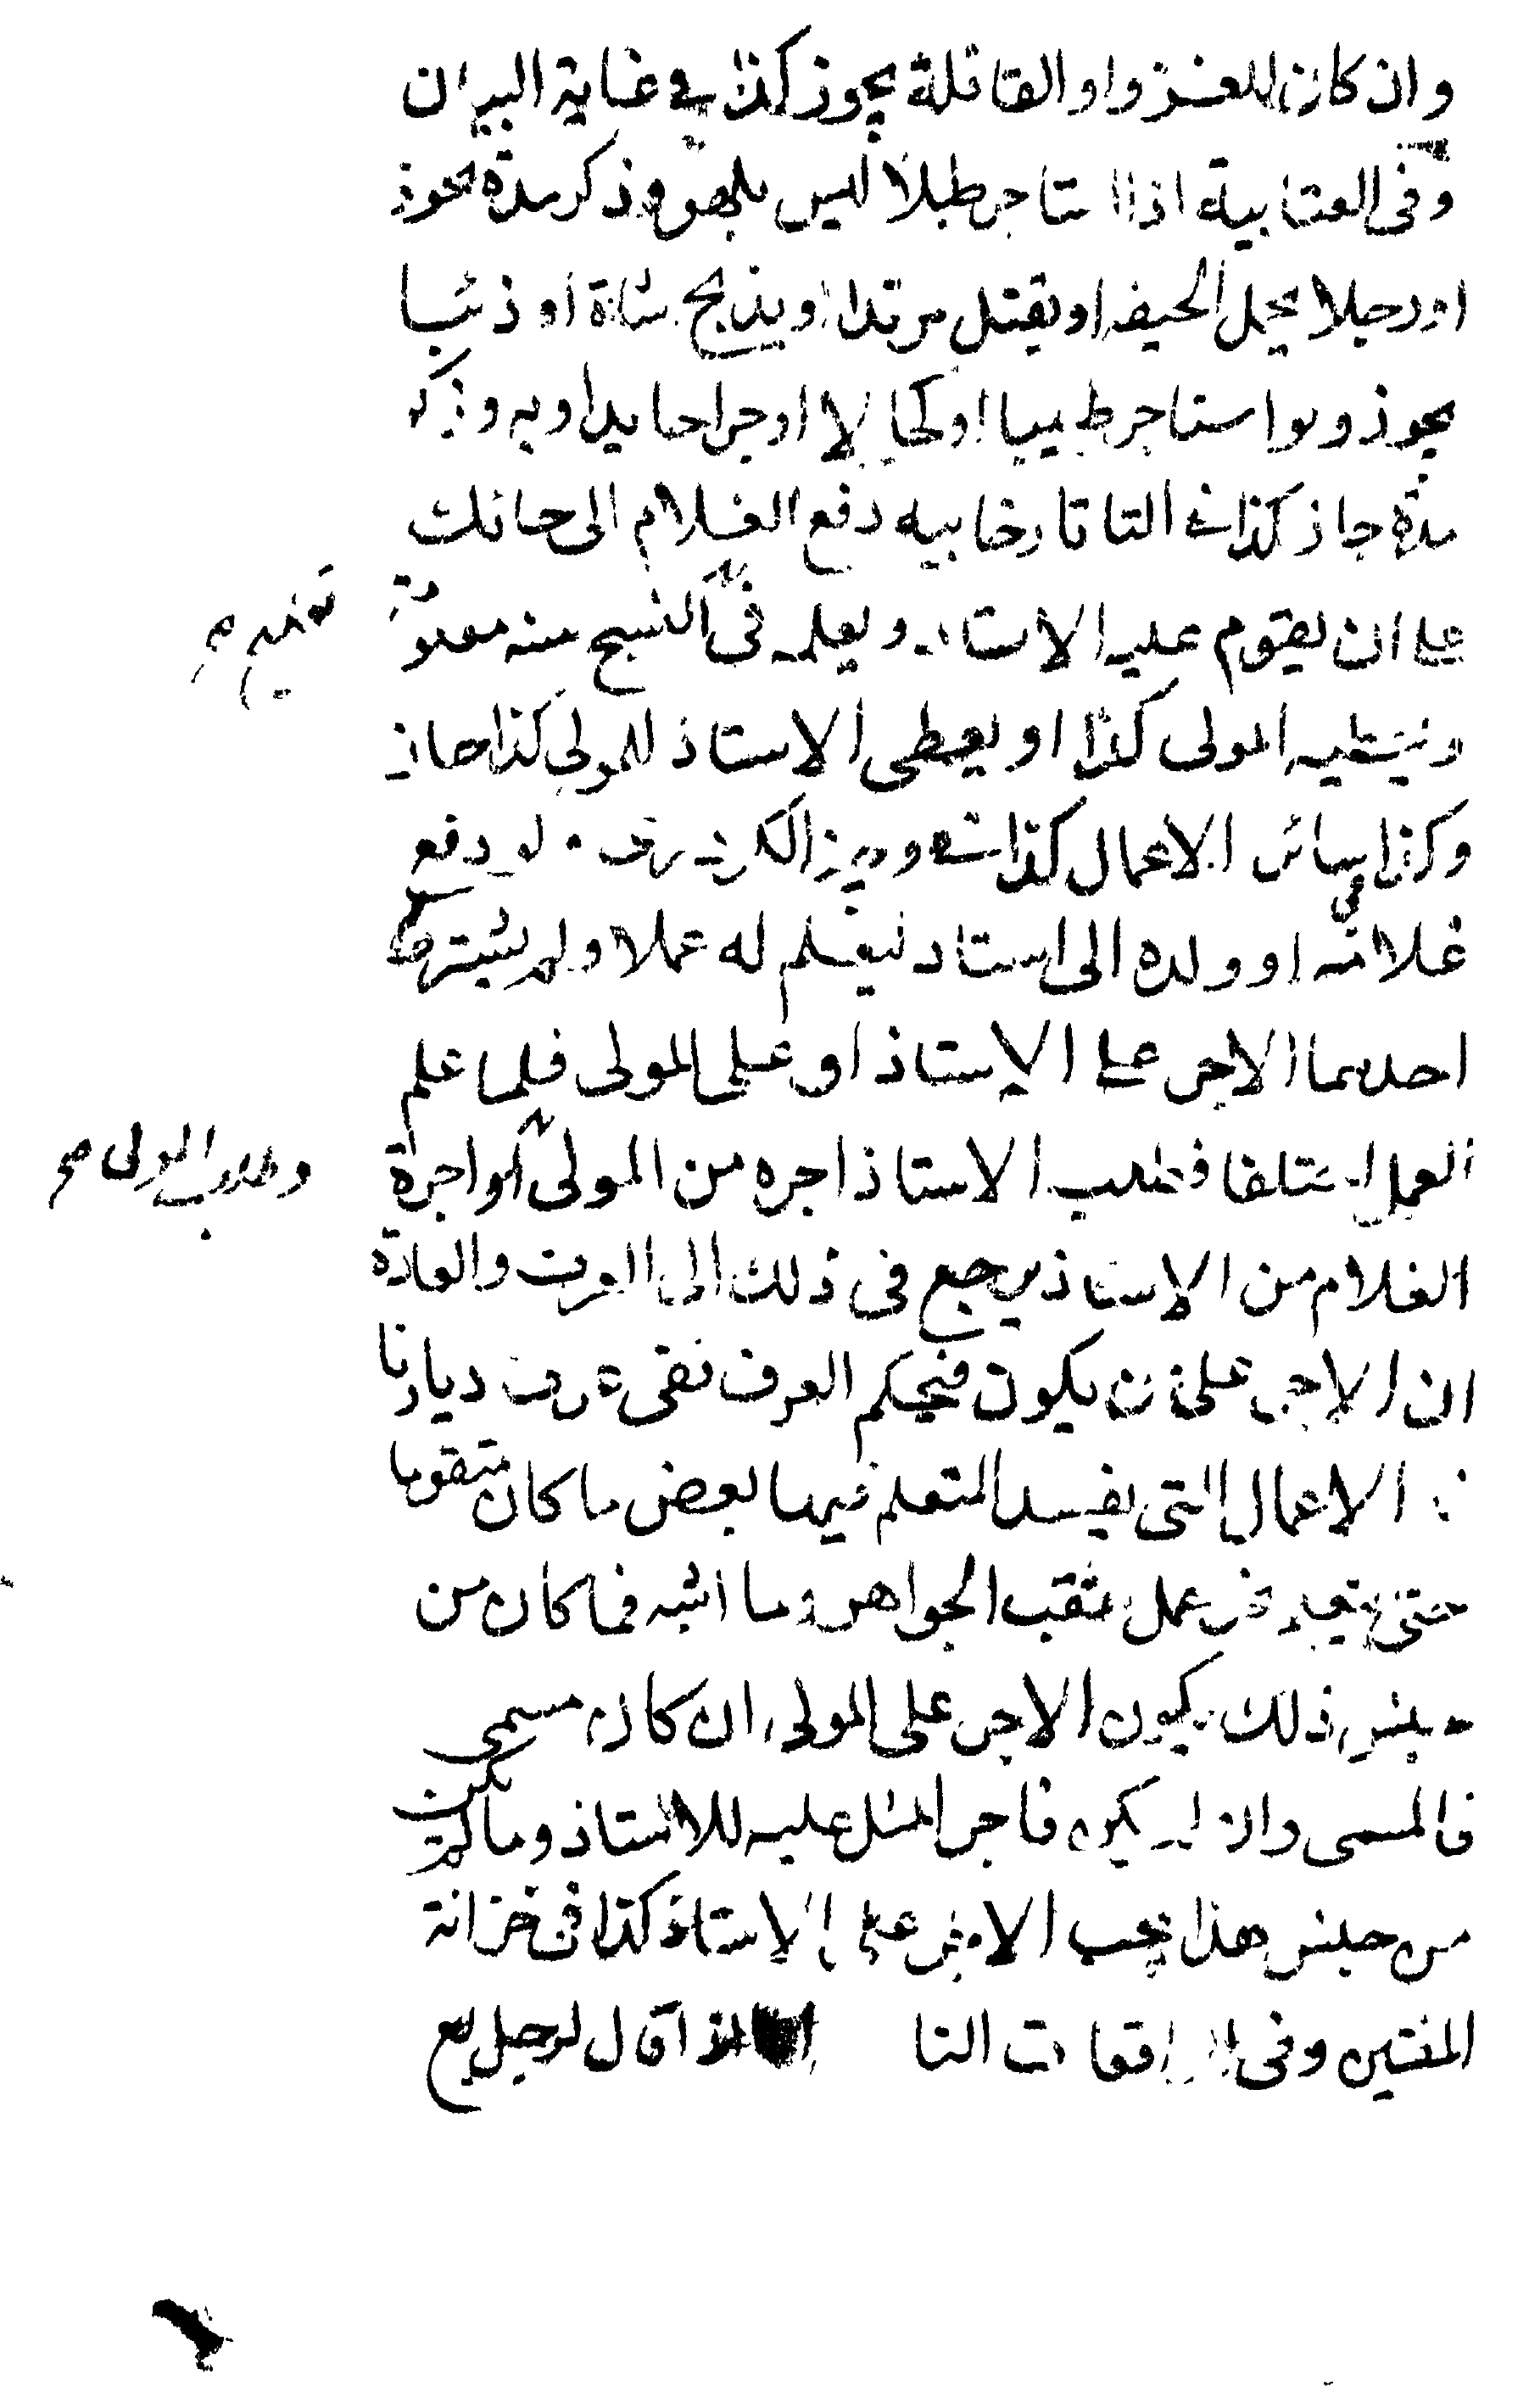 وان كان للغزو او القافلة يجوز كذا في غاية البيان
وفي العتابية اذا استاجر طبلا ليس بلهو وذكر مدة يجوز
او رجلا يحمل الجيفه او يقتل مرتدا او يذبح شاة او ذئبا
يجوز ولو استاجر طبيبا او كحالا او جراحا يداويه وذكر
مدة جاز كذا في التاتارخانيه دفع الغلام الى حائك
على ان يقوم عليه الاستاد ويعلمه في النسج سنه معلومة
ويعطيه المولى كذا او يعطى الاستاذ للمولى كذا جاز
وكذا في سائر الاعمال كذا في وجيز الكردرى ولو دفع
غلامه او ولده الى استاد ليعلم له عملا ولم يشترط
احدهما الاجر على الاستاذ او على المولى فلما علم
العمل اختلفا فطلب الاستاذ اجره من المولى اجرة
وطلب المولى صح
الغلام من الاستاذ يرجع في ذلك الى العرف والعادة
ان الاجر على من يكون فيحكم العرف ففي عرف ديارنا
الاعمال التى يفسد المتعلم فيها بعض ما كان متقوما
حتى يتعلم نحو عمل ثقب الجواهر وما اشبه فما كان من
جنس ذلك يكون الاجر على المولى ان كان مسمى
فالمسمى وان لم يكن فاجر المثل عليه للاستاذ وما لم يكن
من جنس هذا يجب الاجر على الاستاذ كذا في خزانة
المفتين وفى الواقعات اذا قال لرجل بع